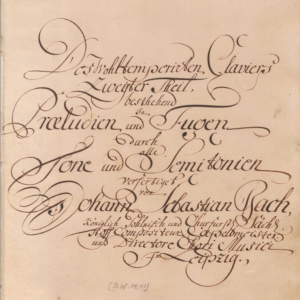 Des Wohltemperirten Claviers
Zweyter Theil,
bestehend
in
Præludien und Fugen
durch
alle
Tone und Semitonien
verfertiget
von
Johann Sebastian Bach,
Königlich Pohlnisch und Churfürstl. Sächs.
Hoff Compositeur, Capellmeister
und Directore Chori Musici
in Leipzig.